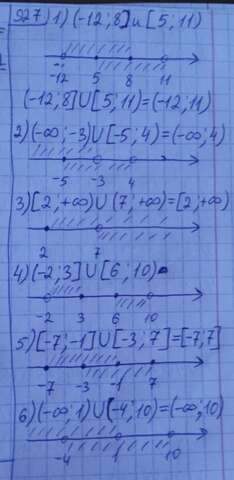 927 1) (-12; 8] и [5; 11)
-12 5 8 11
(-12; 8] U [5; 11) = (-12; 11)
2) (-∞; -3) U [-5; 4) = (-∞; 4)
-5 -3 4
3) [2; +∞) U (7; +∞) = [2; +∞)
2 7
4) (-2; 3] U [6; 10)
-2 3 6 10
5) [-7; -1] U [-3; 7] = [-7; 7]
-7 -3 -1 7
6) (-∞; 1) U (-4; 10) = (-∞; 10)
-4 1 10